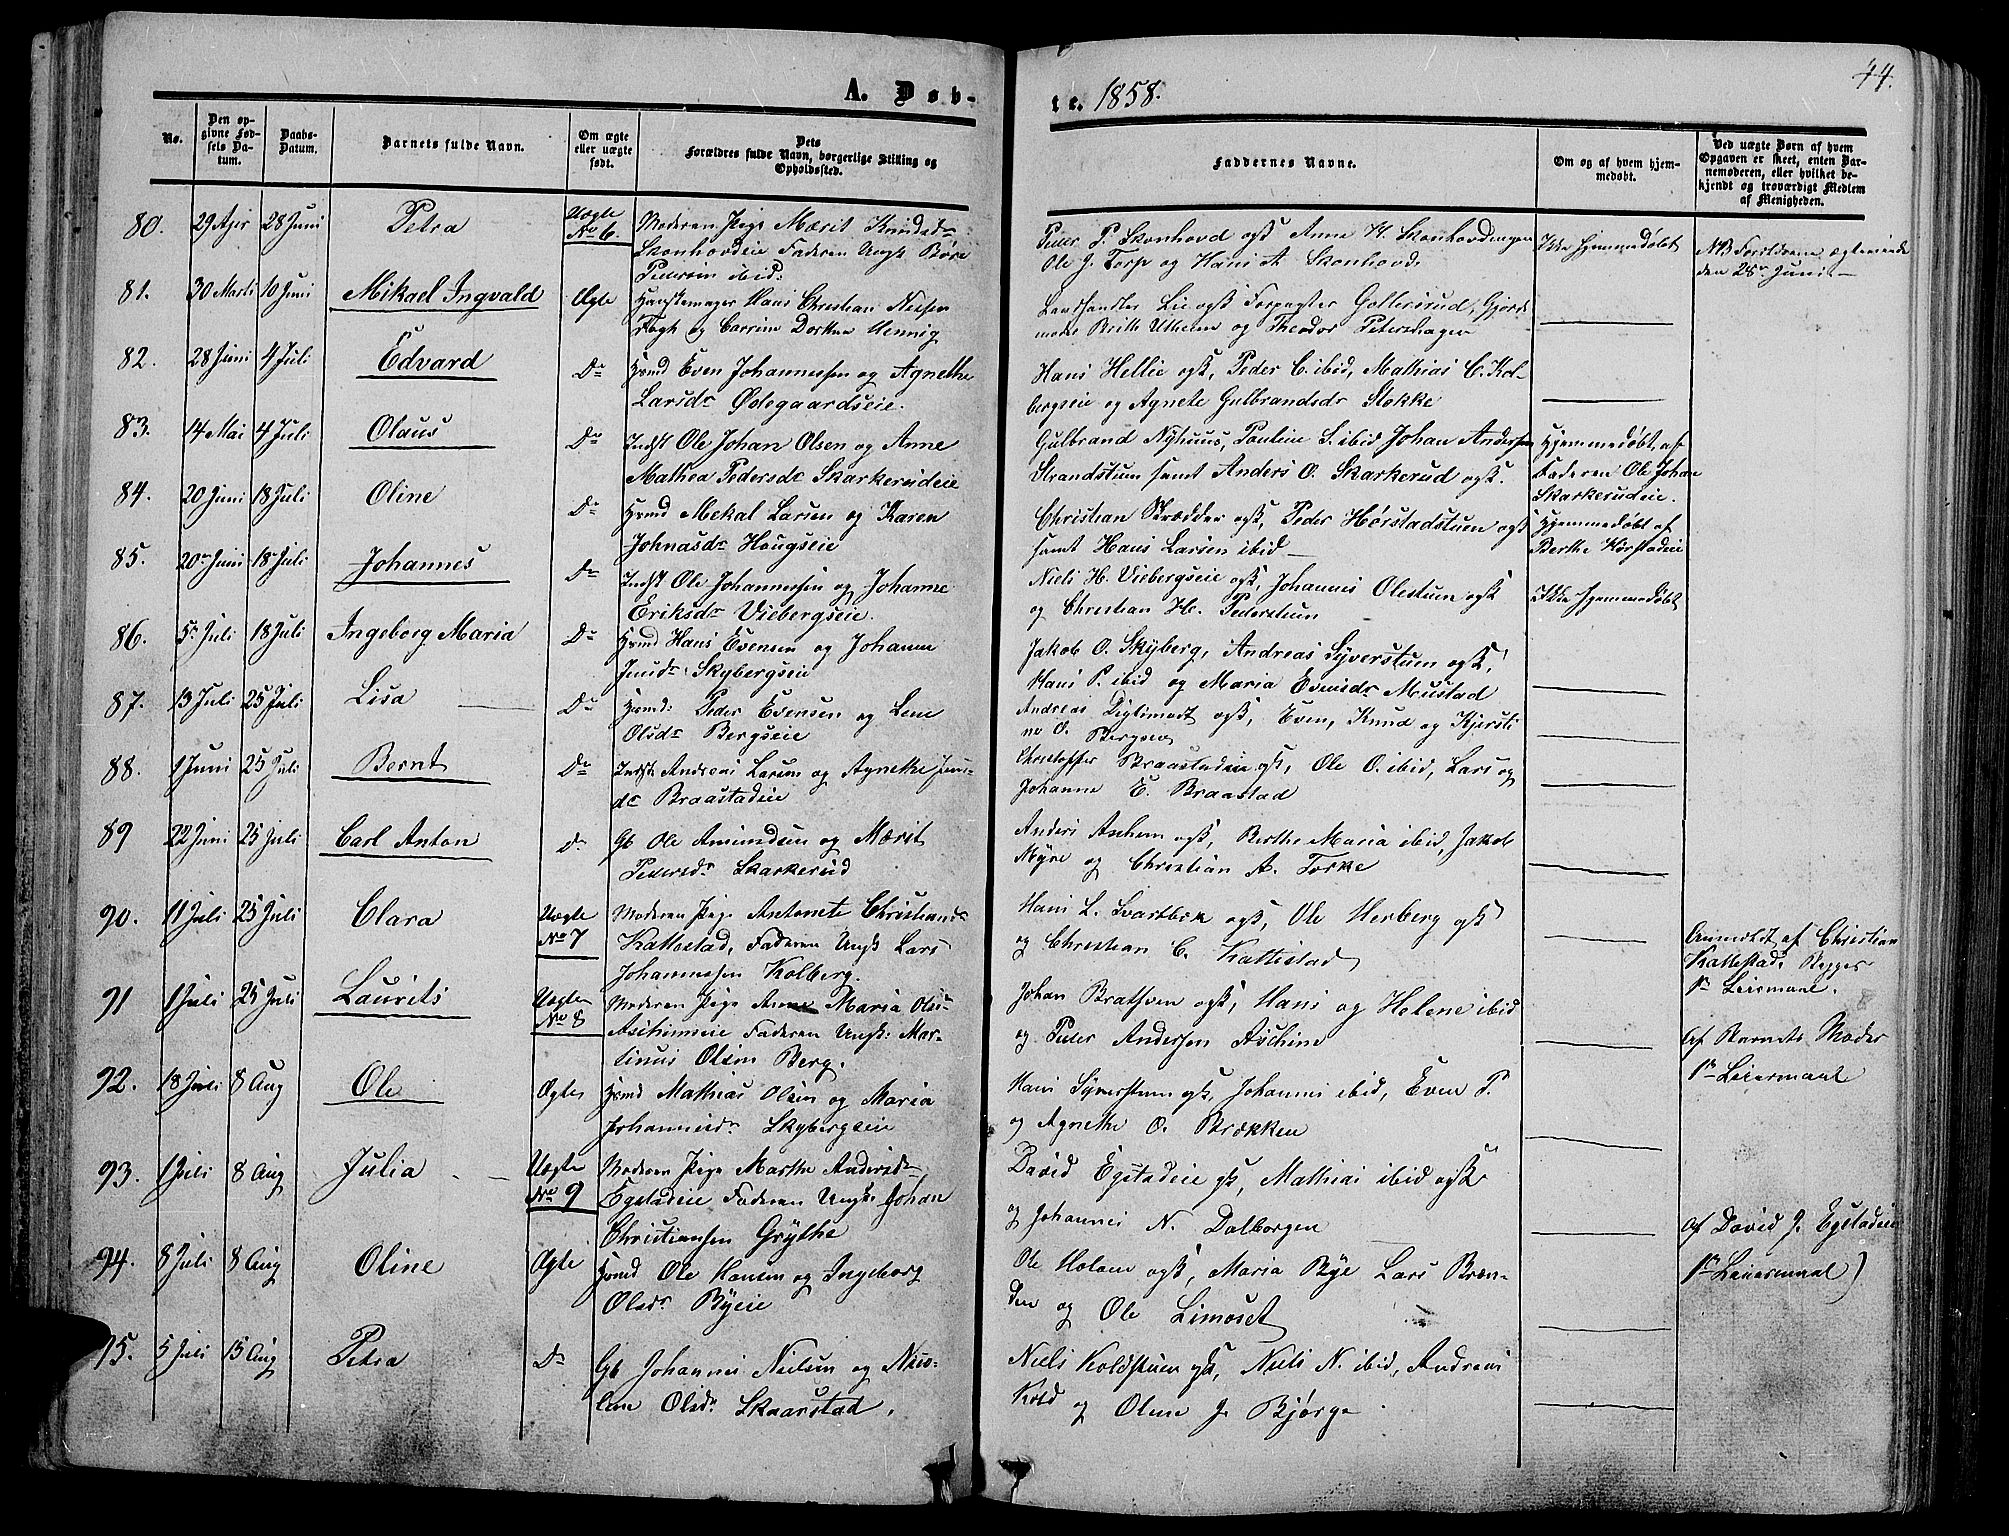 A. Døb-
te. 1858.
44.
No.
Den opgivne Fødsels Datum.
Daabs-Datum.
Barnets fulde Navn.
Om ægte eller uægte født.
Dets Forældres fulde Navn, borgerlige Stilling og Opholdssted.
Faddernes Navne.
Om og af hvem hjemmedøbt.
Ved uægte Børn af hvem Opgaven er skeet, enten Barnemoderen, eller hvilket bekjendt og troværdigt Medlem af Menigheden.
80. 29 Apr 28 Juni Petra Uægte No 6. Moderen Pige Marit Knudsdr
Skonhovdeie Faderen Ungk Børe
Pedersen ibid.
Peder P. Skonhovd ogsk Anne H. Skonhovdengen
Ole J. Torp og Hans A. Skonhovd.
Ikke hjemmedøbt
NB Forældrene ægteviede
den 28de Juni
81. 30 Marts 10 Juni Mikael Ingvald Ægte Handskemager Hans Christian Nielsen
Fogh og Carrine Dorthea Hennig
Landhandler Lie ogsk Forpagter Gottersrud, Gjord-
moder Brith Utheim og Theodor Petershagen
82. 28 Juni 4 Juli Edvard Do Hmd Even Johannessen og Agnethe
Larsdr Ødegaardseie.
Hans Hellie ogsk, Peder C. ibid, Mathias C. Kol-
bergseie og Agnete Gulbrandsdr Stokke
83. 14 Mai 4 Juli Olaus Do Indst Ole Johan Olsen og Anne
Mathea Pedersdr Skarkerudeie
Gulbrand Nyhuus, Pauline S. ibid Johan Andersen
Strandstuen samt Anders O. Skarkerud ogsk.
Hjemmedøbt af
Faderen Ole Johan
Skarkerudeie.
84. 20 Juni 18 Juli Oline Do Hmd Mekal Larsen og Karen
Johnasdr Hougseie
Christian Skrædder ogsk, Peder Hørstadstuen ogsk
samt Hans Larsen ibid
Hjemmedøbt af
Berthe Hørstadeie
85. 20de Juni 18 Juli Johannes Do Indst Ole Johannessen og Johanne
Eriksdr Viebergseie.
Niels H. Viebergseie ogsk, Johannes Olestuen ogsk
og Christian H. Pederstuen
Ikke hjemmedøbt
86. 5te Juli 18 Juli Ingeborg Maria Do Hmd Hans Evensen og Johanne
Jensdr Skybergseie
Jakob O. Skyberg, Andreas Syverstuen ogsk,
Hans P. ibid og Maria Evensdr Mustad
87. 13 Juli 25 Juli Lisa Do Hmd: Peder Evensen og Lene
Olsdr Bergseie
Andreas ogsk, Even, Knud og Kjersti-
ne O. Bergseng
88. 1 Juni 25 Juli Bernt Do Indst Andreas Larsen og Agnethe Jens-
dr Braastadeie
Christopher Braastadeie ogsk, Ole O. ibid, Lars og
Johanne E. Braastad
89 22 Juni 25 Juli Carl Anton do Gb Ole Amundsen og Marit
Pedersdr Skarkerud
Anders Aschem ogsk, Berthe Maria ibid, Jakob
Myre og Christian A. Torke
90. 11 Juli 25 Juli Clara Uægte No 7 Moderen Pige Antonete Christiansdr
Kattestad, Faderen Ungk Lars
Johannessen Kolberg.
Hans L. Svartbek ogsk, Ole Herberg ogsk
og Christian C. Kattestad
Anmeldt af Christian
Kattestad,
1ste Leiermaal.
91 1 Juli 25 Juli Laurits Uægte No 8 Moderen Pige Anne Maria Olsdr
Aschimeie Faderen Ungk: Mar-
tinus Olsen Berg.
Johan Brathven ogsk, Hans og Helene ibid
og Peder Andersen Aschim
Af Barnets Moder
1ste Leiermaal
92. 18 Juli 8 Aug Ole Ægte Hmd Mathias Olsen og Maria
Johannesdr Skybergseie
Hans Syverstuen ogsk, Johannes ibid, Even P.
og Agnethe O. Brækken
93. 1 Juli 8 Aug Julia Uægte No 9 Moderen Pige Marthe Andersdr
Egstadeie Faderen Ungk: Johan
Christiansen Grythe
David Egstadeie ogsk, Mathias ibid ogsk
og Johannes N. Dalborgen
af David J. Egstadeie
1ste Leiermaal)
94. 8 Juli 8 Aug Oline Ægte Hmd Ole Hansen og Ingeborg
Olsdr Byeie
Ole Holom ogsk, Maria Bye Lars Bræn-
den og Ole Limoset
95. 5 Juli 15 Aug Petra Do Gb Johannes Nielsen og Nico-
line Olsdr Skaarstad.
Niels Koldstuen ogsk, Niels N. ibid, Andreas
Kold og Oline J. Bjørge.